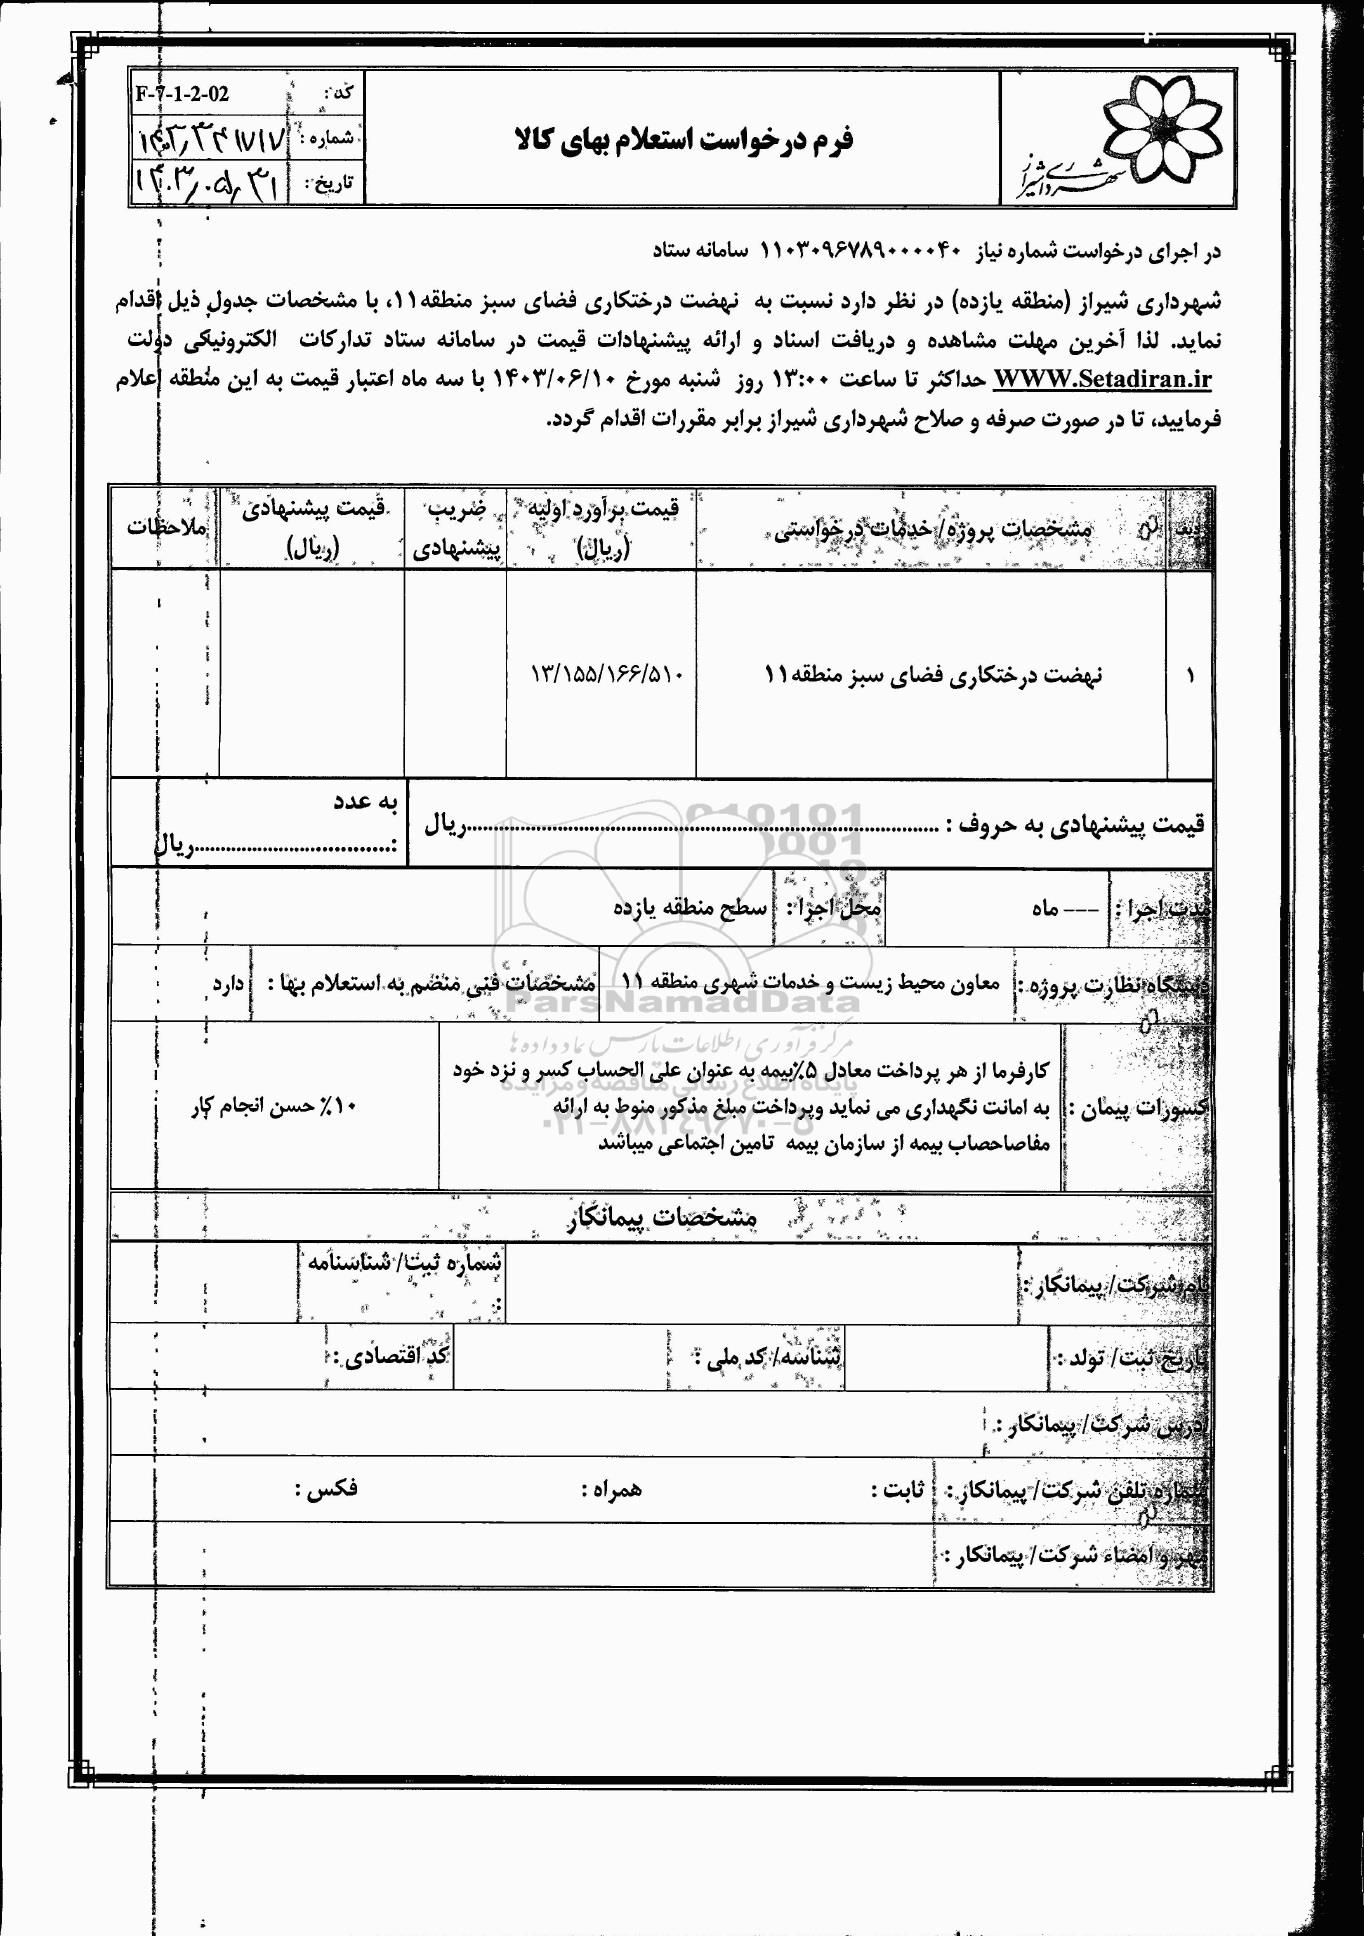 شهرداری شیراز
فرم درخواست استعلام بهای کالا
کد : F-7-1-2-02
شماره :
تاریخ : ۱۴۰۳٫۰۵٫۳۱
در اجرای درخواست شماره نیاز ۱۱۰۳۰۹۶۷۸۹۰۰۰۰۴۰ سامانه ستاد
شهرداری شیراز (منطقه یازده) در نظر دارد نسبت به نهضت درختکاری فضای سبز منطقه۱۱، با مشخصات جدول ذیل اقدام
نماید. لذا آخرین مهلت مشاهده و دریافت اسناد و ارائه پیشنهادات قیمت در سامانه ستاد تدارکات الکترونیکی دولت
WWW.Setadiran.ir حداکثر تا ساعت ۱۳:۰۰ روز شنبه مورخ ۱۴۰۳/۰۶/۱۰ با سه ماه اعتبار قیمت به این منطقه اعلام
فرمایید، تا در صورت صرفه و صلاح شهرداری شیراز برابر مقررات اقدام گردد.
ردیف مشخصات پروژه/ خدمات درخواستی قیمت برآورد اولیه (ریال) ضریب پیشنهادی قیمت پیشنهادی (ریال) ملاحظات
۱ نهضت درختکاری فضای سبز منطقه۱۱ ۱۳/۱۵۵/۱۶۶/۵۱۰
قیمت پیشنهادی به حروف : ........................................ریال به عدد
:....................................ریال
مدت اجرا : --- ماه محل اجرا : سطح منطقه یازده
دستگاه نظارت پروژه : معاون محیط زیست و خدمات شهری منطقه ۱۱ مشخصات فنی منضم به استعلام بها : دارد
ParsNamadData
مرکز فرآوری اطلاعات پارس نماد داده ها
پایگاه اطلاع رسانی مناقصه و مزایده
۰۲۱-۸۸۳۴۹۶۷۰-۵
کسورات پیمان : کارفرما از هر پرداخت معادل ۵٪بیمه به عنوان علی الحساب کسر و نزد خود
به امانت نگهداری می نماید وپرداخت مبلغ مذکور منوط به ارائه
مفاصاحصاب بیمه از سازمان بیمه تامین اجتماعی میباشد
۱۰٪ حسن انجام کار
مشخصات پیمانکار
نام شرکت/ پیمانکار : شماره ثبت/ شناسنامه :
تاریخ ثبت/ تولد : شناسه/ کد ملی : کد اقتصادی :
آدرس شرکت/ پیمانکار :
شماره تلفن شرکت/ پیمانکار : ثابت : همراه : فکس :
مهر و امضاء شرکت/ پیمانکار :